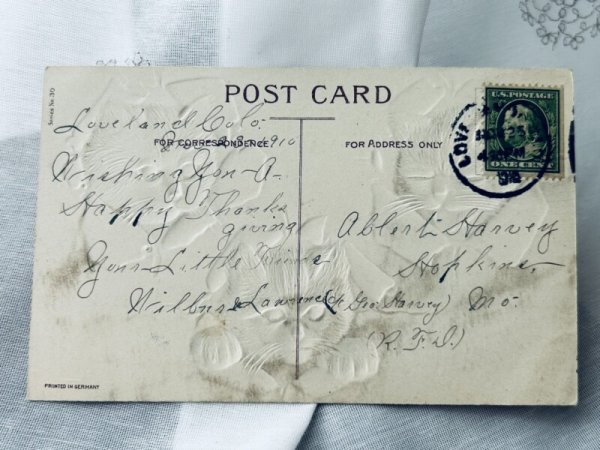 Series No 30
POST CARD
Loveland Colo.
1910
FOR CORRESPONDENCE
FOR ADDRESS ONLY
Wishing You-A-
Happy Thanks
giving
Your Little Friend
Wilbur Lawrence
Albert Harvey
Hopkins,
(℅ Geo. Harvey) Mo.
(R.F.D.)
U.S. POSTAGE
ONE CENT
PRINTED IN GERMANY